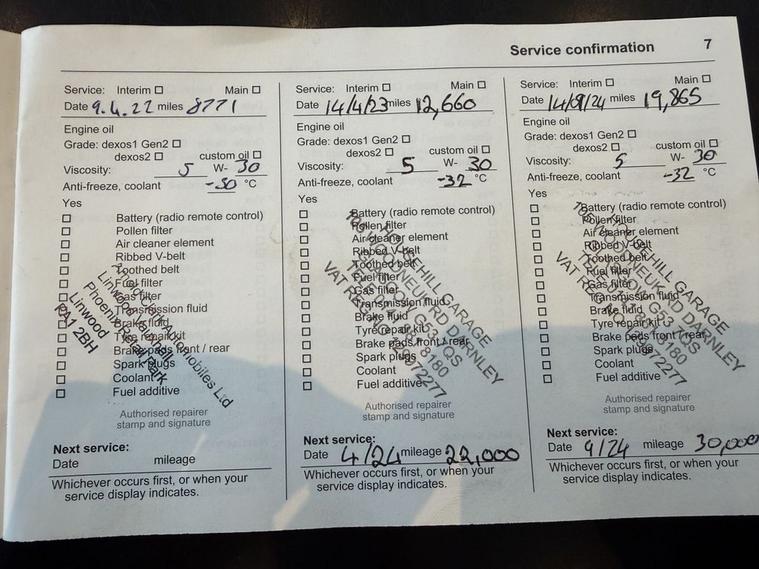 Service confirmation 7
Service: Interim Main
Date 9.4.22 miles 8771
Engine oil
Grade: dexos1 Gen2
dexos2 custom oil
Viscosity: 5 W- 30
Anti-freeze, coolant -30 °C
Yes
Battery (radio remote control)
Pollen filter
Air cleaner element
Ribbed V-belt
Toothed belt
Fuel filter
Gas filter
Transmission fluid
Brake fluid
Tyre repair kit
Brake pads front / rear
Spark plugs
Coolant
Fuel additive
Phoenix
Linwood
PA1 2BH
Authorised repairer
stamp and signature
Next service:
Date mileage
Whichever occurs first, or when your
service display indicates.
Service: Interim Main
Date 14/4/23 miles 12,660
Engine oil
Grade: dexos1 Gen2
dexos2 custom oil
Viscosity: 5 W- 30
Anti-freeze, coolant -32 °C
Yes
Battery (radio remote control)
Pollen filter
Air cleaner element
Ribbed V-belt
Toothed belt
Fuel filter
Gas filter
Transmission fluid
Brake fluid
Tyre repair kit
Brake pads front / rear
Spark plugs
Coolant
Fuel additive
GARAGE
RD DARNLEY
G53 7QS
VAT
Authorised repairer
stamp and signature
Next service:
Date 4/24 mileage 22,000
Whichever occurs first, or when your
service display indicates.
Service: Interim Main
Date 14/09/24 miles 19,865
Engine oil
Grade: dexos1 Gen2
dexos2 custom oil
Viscosity: 5 W- 30
Anti-freeze, coolant -32 °C
Yes
Battery (radio remote control)
Pollen filter
Air cleaner element
Ribbed V-belt
Toothed belt
Fuel filter
Gas filter
Transmission fluid
Brake fluid
Tyre repair kit
Brake pads front / rear
Spark plugs
Coolant
Fuel additive
HILL GARAGE
RD DARNLEY
G53 7QS
VAT
Authorised repairer
stamp and signature
Next service:
Date 9/24 mileage 30,000
Whichever occurs first, or when your
service display indicates.